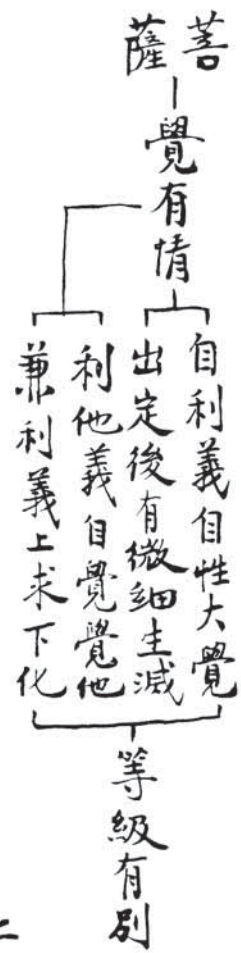 菩薩
覺有情
自利義自性大覺
出定後有微細生滅
利他義自覺覺他
兼利義上求下化
等級有別